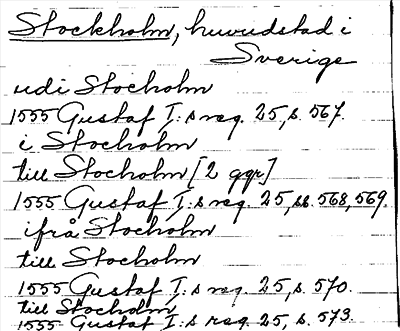 Stockholm, huvudstad i
Sverige
udi Stocholm
1555 Gustaf I:s reg. 25, s. 567.
i Stocholm
till Stocholm [2 ggr]
1555 Gustaf I:s reg. 25, ss. 568, 569.
ifrå Stocholm
till Stocholm
1555 Gustaf I:s reg. 25, s. 570.
till Stocholm
1555 Gustaf I:s reg. 25, s. 573.